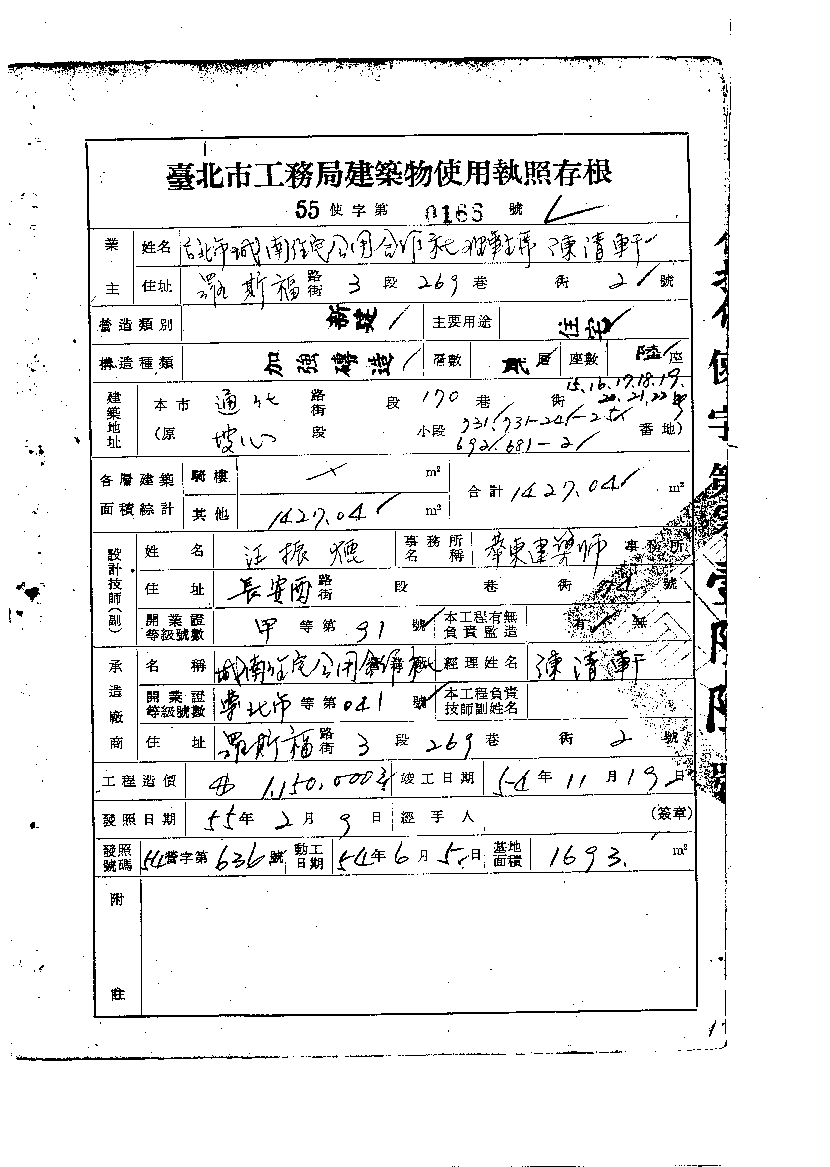 臺北市工務局建築物使用執照存根
55 使字第 0166 號
業主 姓名 台北市城南住宅公用合作社 理事主席 陳清軒
住址 羅斯福 路街 3 段 269 巷 街 2 號
營造類別 新建 主要用途 住宅
構造種類 加強磚造 層數 貳層 座數 陸座
建築地址 本市 通化 路街 段 170 巷 街 15.16.17.18.19. 20.21.22 號
(原 坡心 段 小段 931/931-24/-25/ 692/681-2/ 番地)
各層建築面積綜計 騎樓 × m² 合計 1427.04 m²
其他 1427.04 m²
設計技師(副) 姓名 汪振 事務所名稱 華東建築師 事務所
住址 長安西 路街 段 巷 街 號
開業證等級號數 甲 等第 91 號 本工程有無負責監造 有 無
承造廠商 名稱 城南住宅公用合作社 經理姓名 陳清軒
開業證等級號數 北市 等第 041 號 本工程負責技師副姓名
住址 羅斯福 路街 3 段 269 巷 街 2 號
工程造價 1,150,000 竣工日期 54 年 11 月 19 日
發照日期 55 年 2 月 9 日 經手人 (簽章)
發照號碼 54 營字第 636 號 動工日期 54 年 6 月 5 日 基地面積 1693. m²
附註